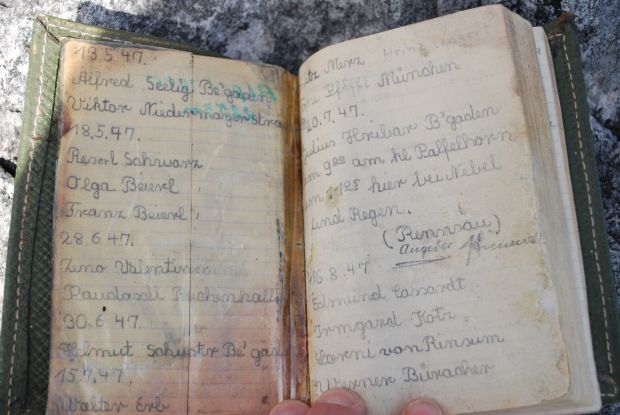 13.5.47.
Alfred Seelig Be'gaden
Viktor Niedermayer
18.5.47.
Reserl Schwarz
Olga Beierl
Franz Beierl
28.6.47.
Zeno Valentiner
Reichenhall
30.6.47.
Helmut Schustr Be'gad
15.7.47.
Walter Erb
Merz
München
20.7.47.
Julius Hribar B'gaden
um 9 00 am kl Palfelhorn
um 1 05 hier bei Nebel
und Regen.
(Rennsau)
Angeber
16.8.47
Edmund Cassardt.
Irmgard Katz.
Corni van Rinsum
Werner Büracher